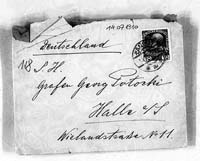 14.07.1910
Deutschland
S. H.
Grafen Georg Potoski
Halle a/S
Wielandstraße No 11.